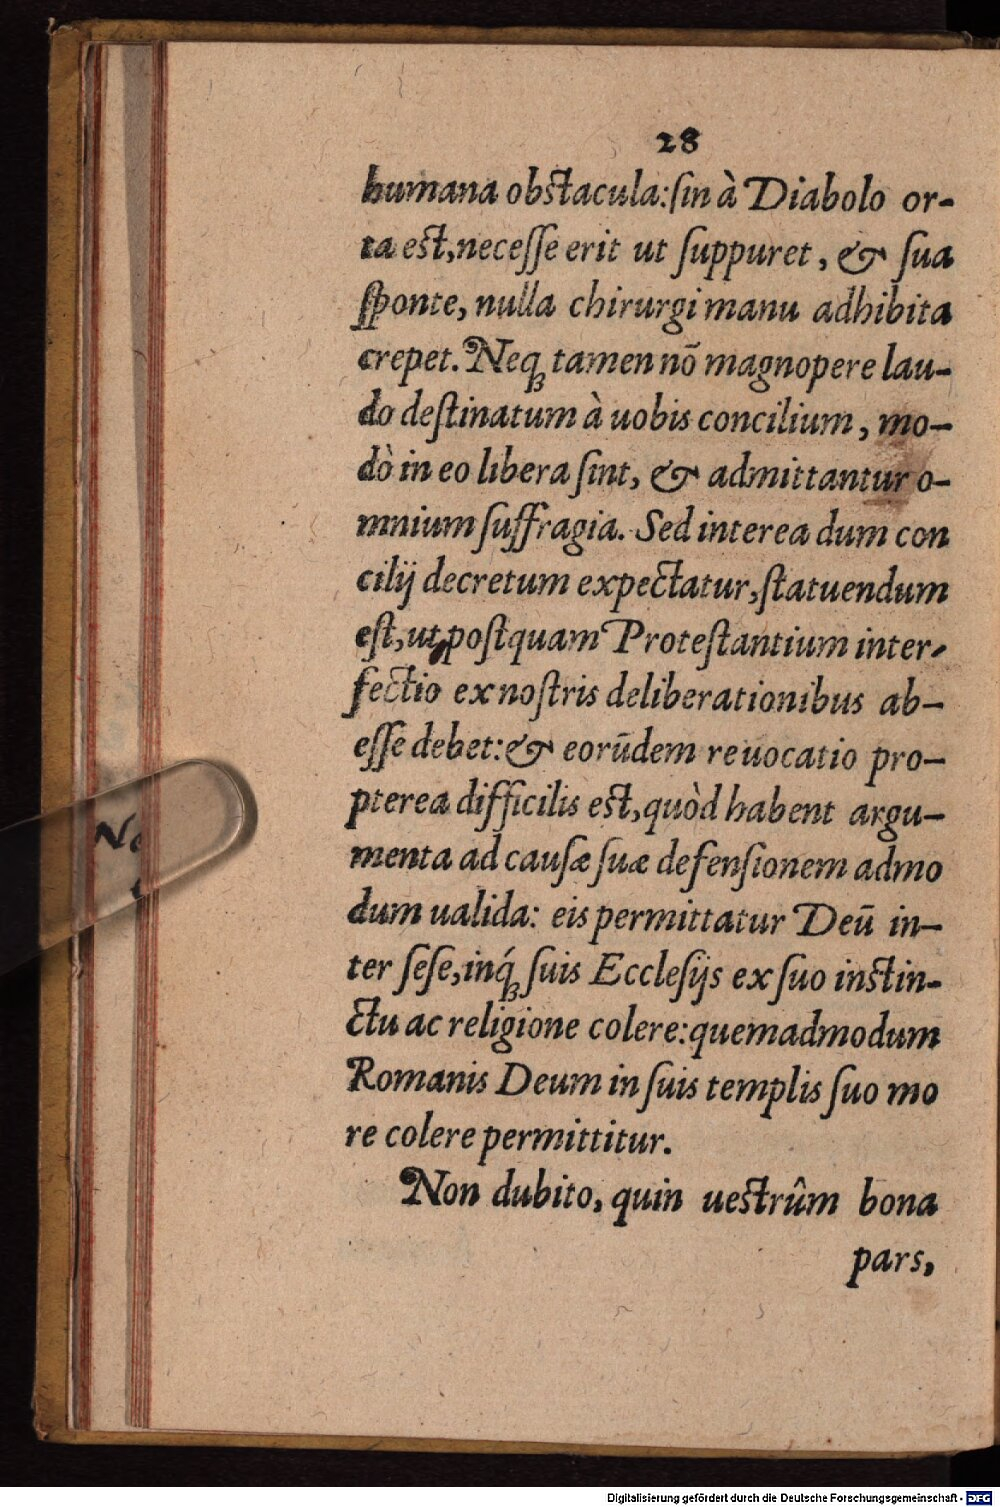 28
humana obstacula:ſin à Diabolo or-
ta eſt,neceſſe erit ut ſuppuret, & ſua
ſponte, nulla chirurgi manu adhibita
crepet. Neqꝫ tamen nō magnopere lau-
do deſtinatum à uobis concilium, mo-
dò in eo libera ſint, & admittantur o-
mnium ſuffragia. Sed interea dum con
cilij decretum expectatur,ſtatuendum
eſt,ut,poſtquam Proteſtantium inter-
fectio ex noſtris deliberationibus ab-
eſſe debet:& eorūdem reuocatio pro-
pterea difficilis eſt,quòd habent argu-
menta ad cauſæ ſuæ defenſionem admo
dum ualida: eis permittatur Deū in-
ter ſeſe,inq́ꝫ ſuis Eccleſijs ex ſuo inſtin-
ctu ac religione colere:quemadmodum
Romanis Deum in ſuis templis ſuo mo
re colere permittitur.
Non dubito, quin ueſtrûm bona
pars,
No
Digitalisierung gefördert durch die Deutsche Forschungsgemeinschaft - DFG